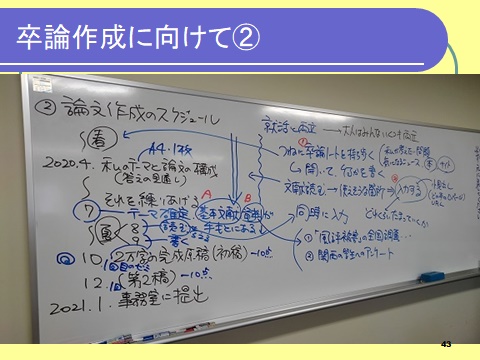 卒論作成に向けて②
② 論文作成のスケジュール
春
A4.1枚
2020.4. 私のテーマと論文の構成
(答えの見通し)
それを練りあげる
A B
7 テーマ確定 基本文献
8 読む 手もとにある
夏
9 書く
10. 2万字の完成原稿(初稿)-10点
12. (第2稿)-10点
2021.1. 事務室に提出
就活と両立 → 大人はみんないくつも両立
つねに卒論ノートを持ち歩く
→ 開いて、何かを書く
文献読む → 使えそうな箇所 → 入力する
同時に入力 どれぐらいたまっていくか
関西の学生へのアンケート
43